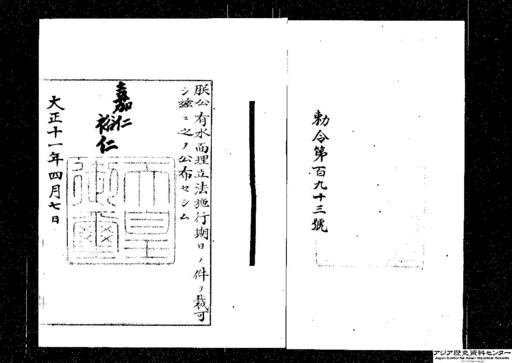 勅令第百九十三號
朕公有水面埋立法施行期日ノ件ヲ裁可
シ茲ニ之ヲ公布セシム
嘉仁
裕仁
天皇御璽
大正十一年四月七日
アジア歴史資料センター
Japan Center for Asian Historical Records